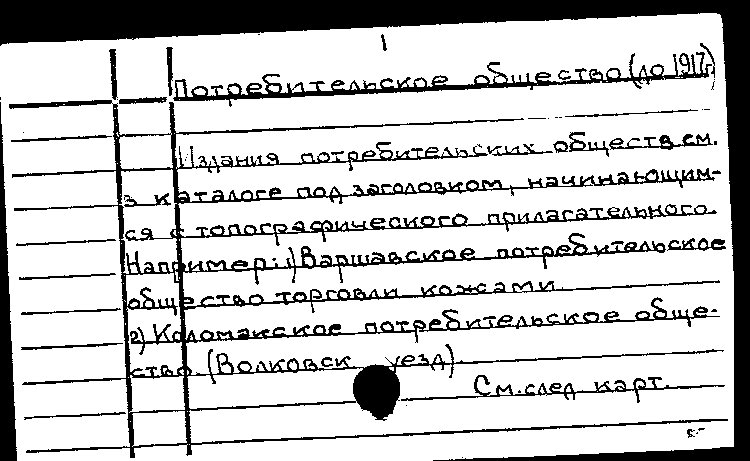 1
Потребительское общество (до 1917г.)
Издания потребительских обществ см.
в каталоге под заголовком, начинающим-
ся с топографического прилагательного.
Например: 1) Варшавское потребительское
общество торговли кожами.
2) Коломакское потребительское обще-
ство. (Волковск уезд).
См. след карт.